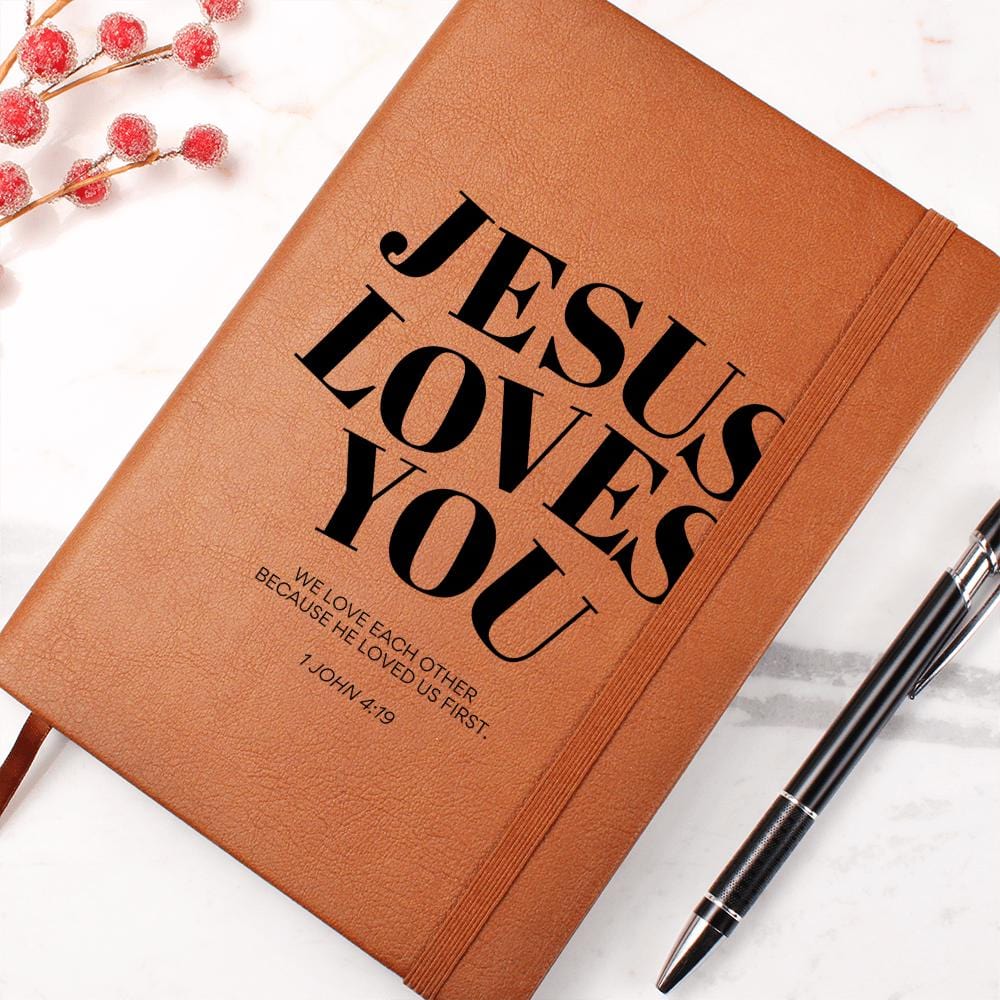 JESUS
LOVES
YOU
WE LOVE EACH OTHER
BECAUSE HE LOVED US FIRST.
1 JOHN 4:19